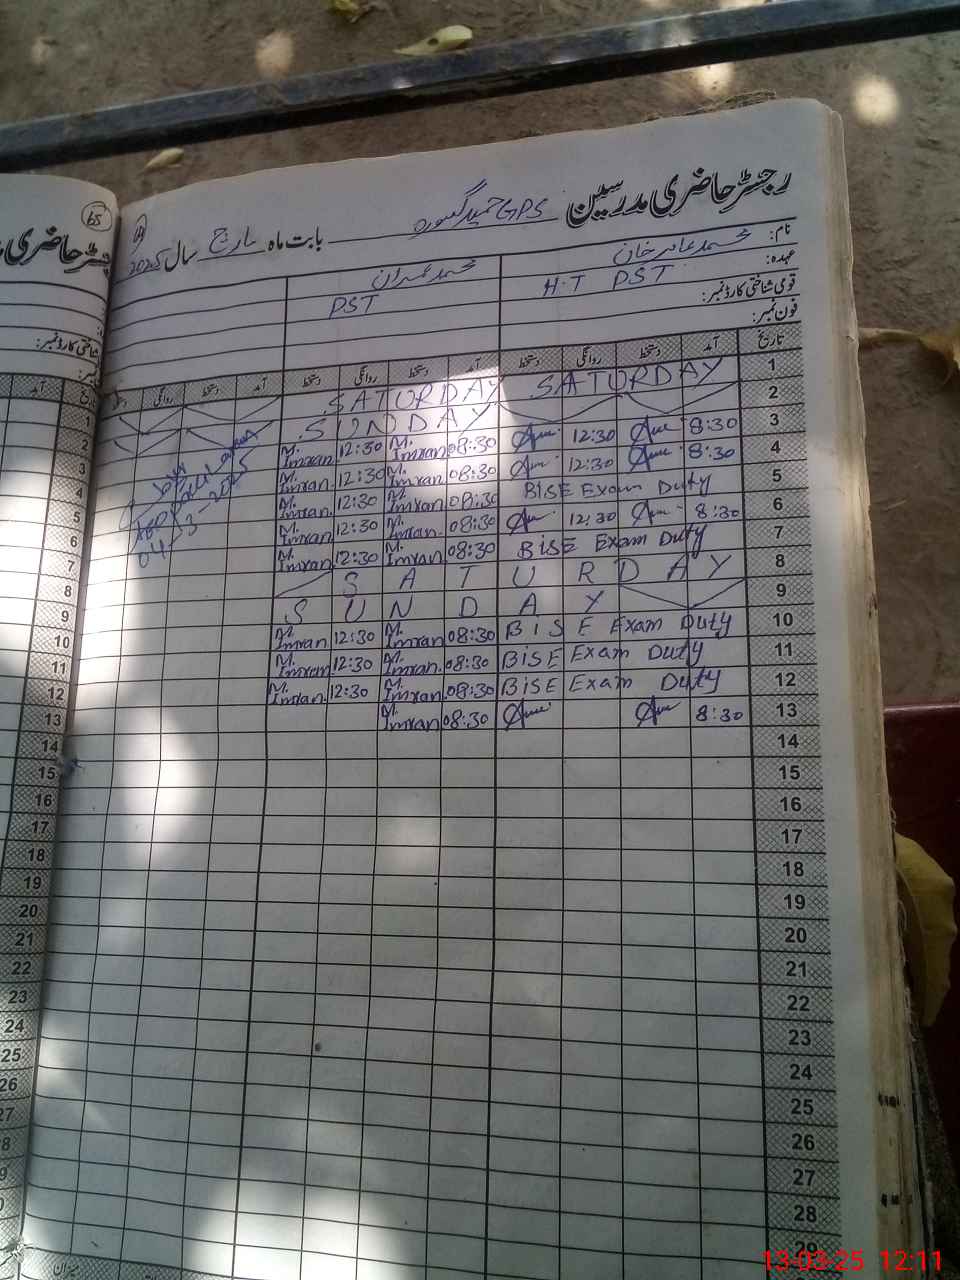 رجسٹر حاضری مدرسین GPS حمید گسورہ بابت ماہ مارچ سال 2025
نام: محمد عامر خان محمد عمران
عہدہ: H.T PST PST
قومی شناختی کارڈ نمبر:
فون نمبر:
تاریخ آمد دستخط روانگی دستخط آمد دستخط روانگی دستخط آمد دستخط روانگی دستخط
1 SATURDAY SATURDAY
2 SUNDAY
3 8:30 12:30 08:30 M. Imran 12:30 M. Imran
4 8:30 12:30 08:30 M. Imran 12:30 M. Imran.
5 BISE Exam Duty 08:30 M. Imran 12:30 M. Imran.
6 8:30 12:30 08:30 M. Imran 12:30 M. Imran
7 BiSE Exam Duty 08:30 M. Imran. 12:30 M. Imran
8 SATURDAY
9 SUNDAY
10 BISE Exam Duty 08:30 M. Imran. 12:30 M. Imran
11 BISE Exam Duty 08:30 M. Imran. 12:30 M. Imran
12 BISE Exam Duty 08:30 M. Imran. 12:30 M. Imran.
13 8:30 08:30 M. Imran
14
15
16
17
18
19
20
21
22
23
24
25
26
27
28
29
04-3-2025
65
رجسٹر حاضری
1
2
3
4
5
6
7
8
9
10
11
12
13
14
15
16
17
18
19
20
21
22
23
24
25
26
27
میزان
13-03-25 12:11